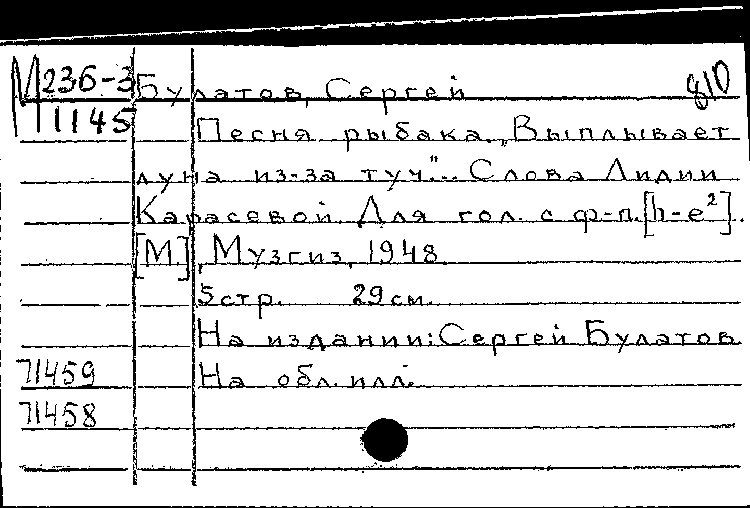 М 236-3
1145
Булатов, Сергей
810
Песня рыбака. „Выплывает
луна из-за туч"... Слова Лидии
Карасевой. Для гол. с ф-п. [h-e²].
[М.], Музгиз, 1948.
5 стр. 29 см.
На издании: Сергей Булатов
71459 На обл. илл.
71458